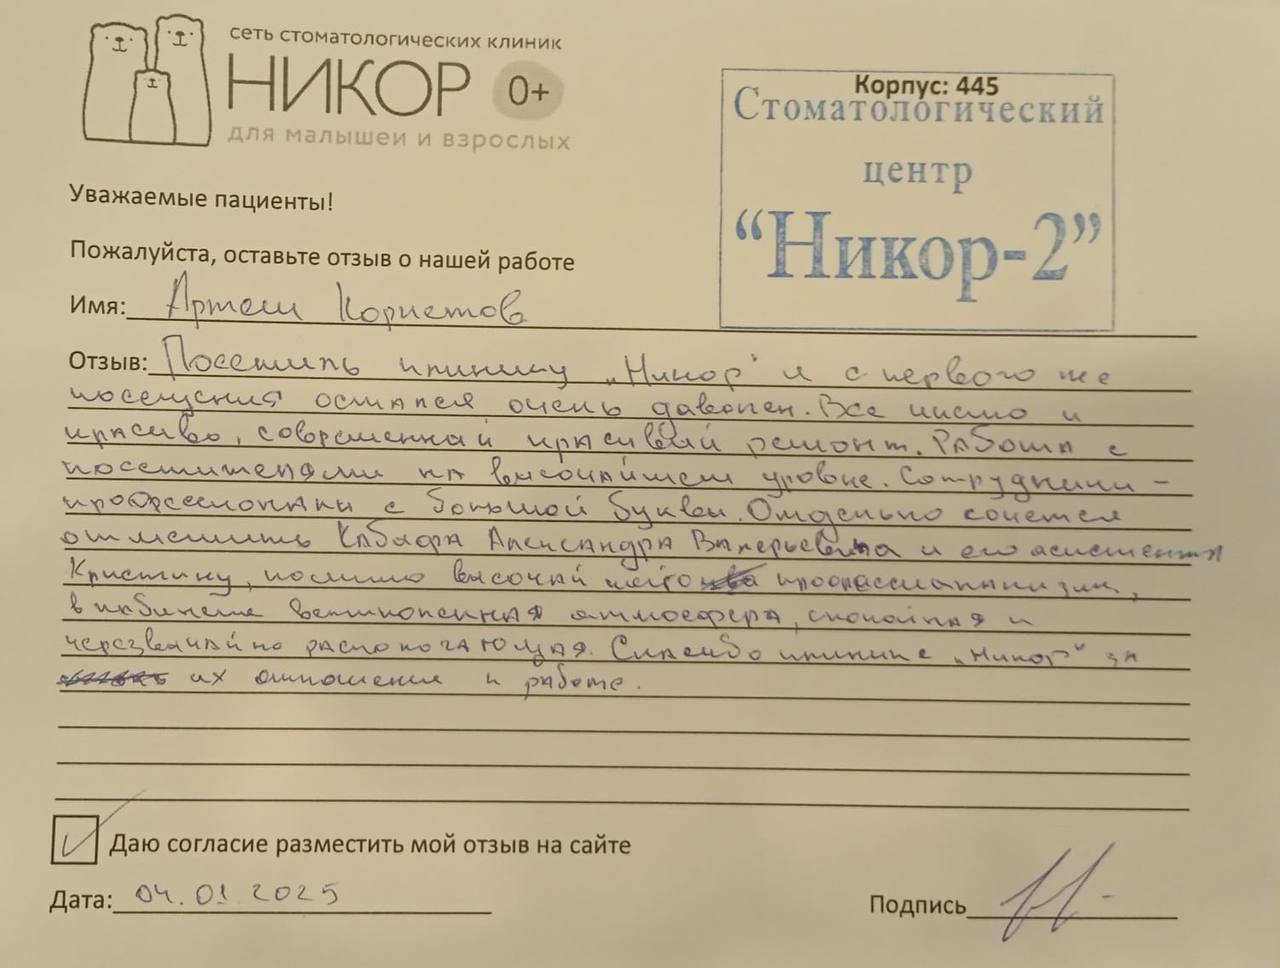 сеть стоматологических клиник
НИКОР 0+
для малышей и взрослых
Корпус: 445
Стоматологический
центр
“Никор-2”
Уважаемые пациенты!
Пожалуйста, оставьте отзыв о нашей работе
Имя: Артем
Отзыв: Посетил клинику „Никор" и с первого же
посещения остался очень доволен. Все чисто и
красиво, современный красивый ремонт. Работа с
посетителями на высочайшем уровне. Сотрудники -
профессионалы с большой буквы. Отдельно хочется
отметить Александра Валерьевича и его ассистента
Кристину, помимо высочайшего профессионализма,
в кабинете великолепная атмосфера, спокойная и
черезвычайно распологающая. Спасибо клинике „Никор" за
их отношение к работе.
Даю согласие разместить мой отзыв на сайте
Дата: 04.01.2025
Подпись